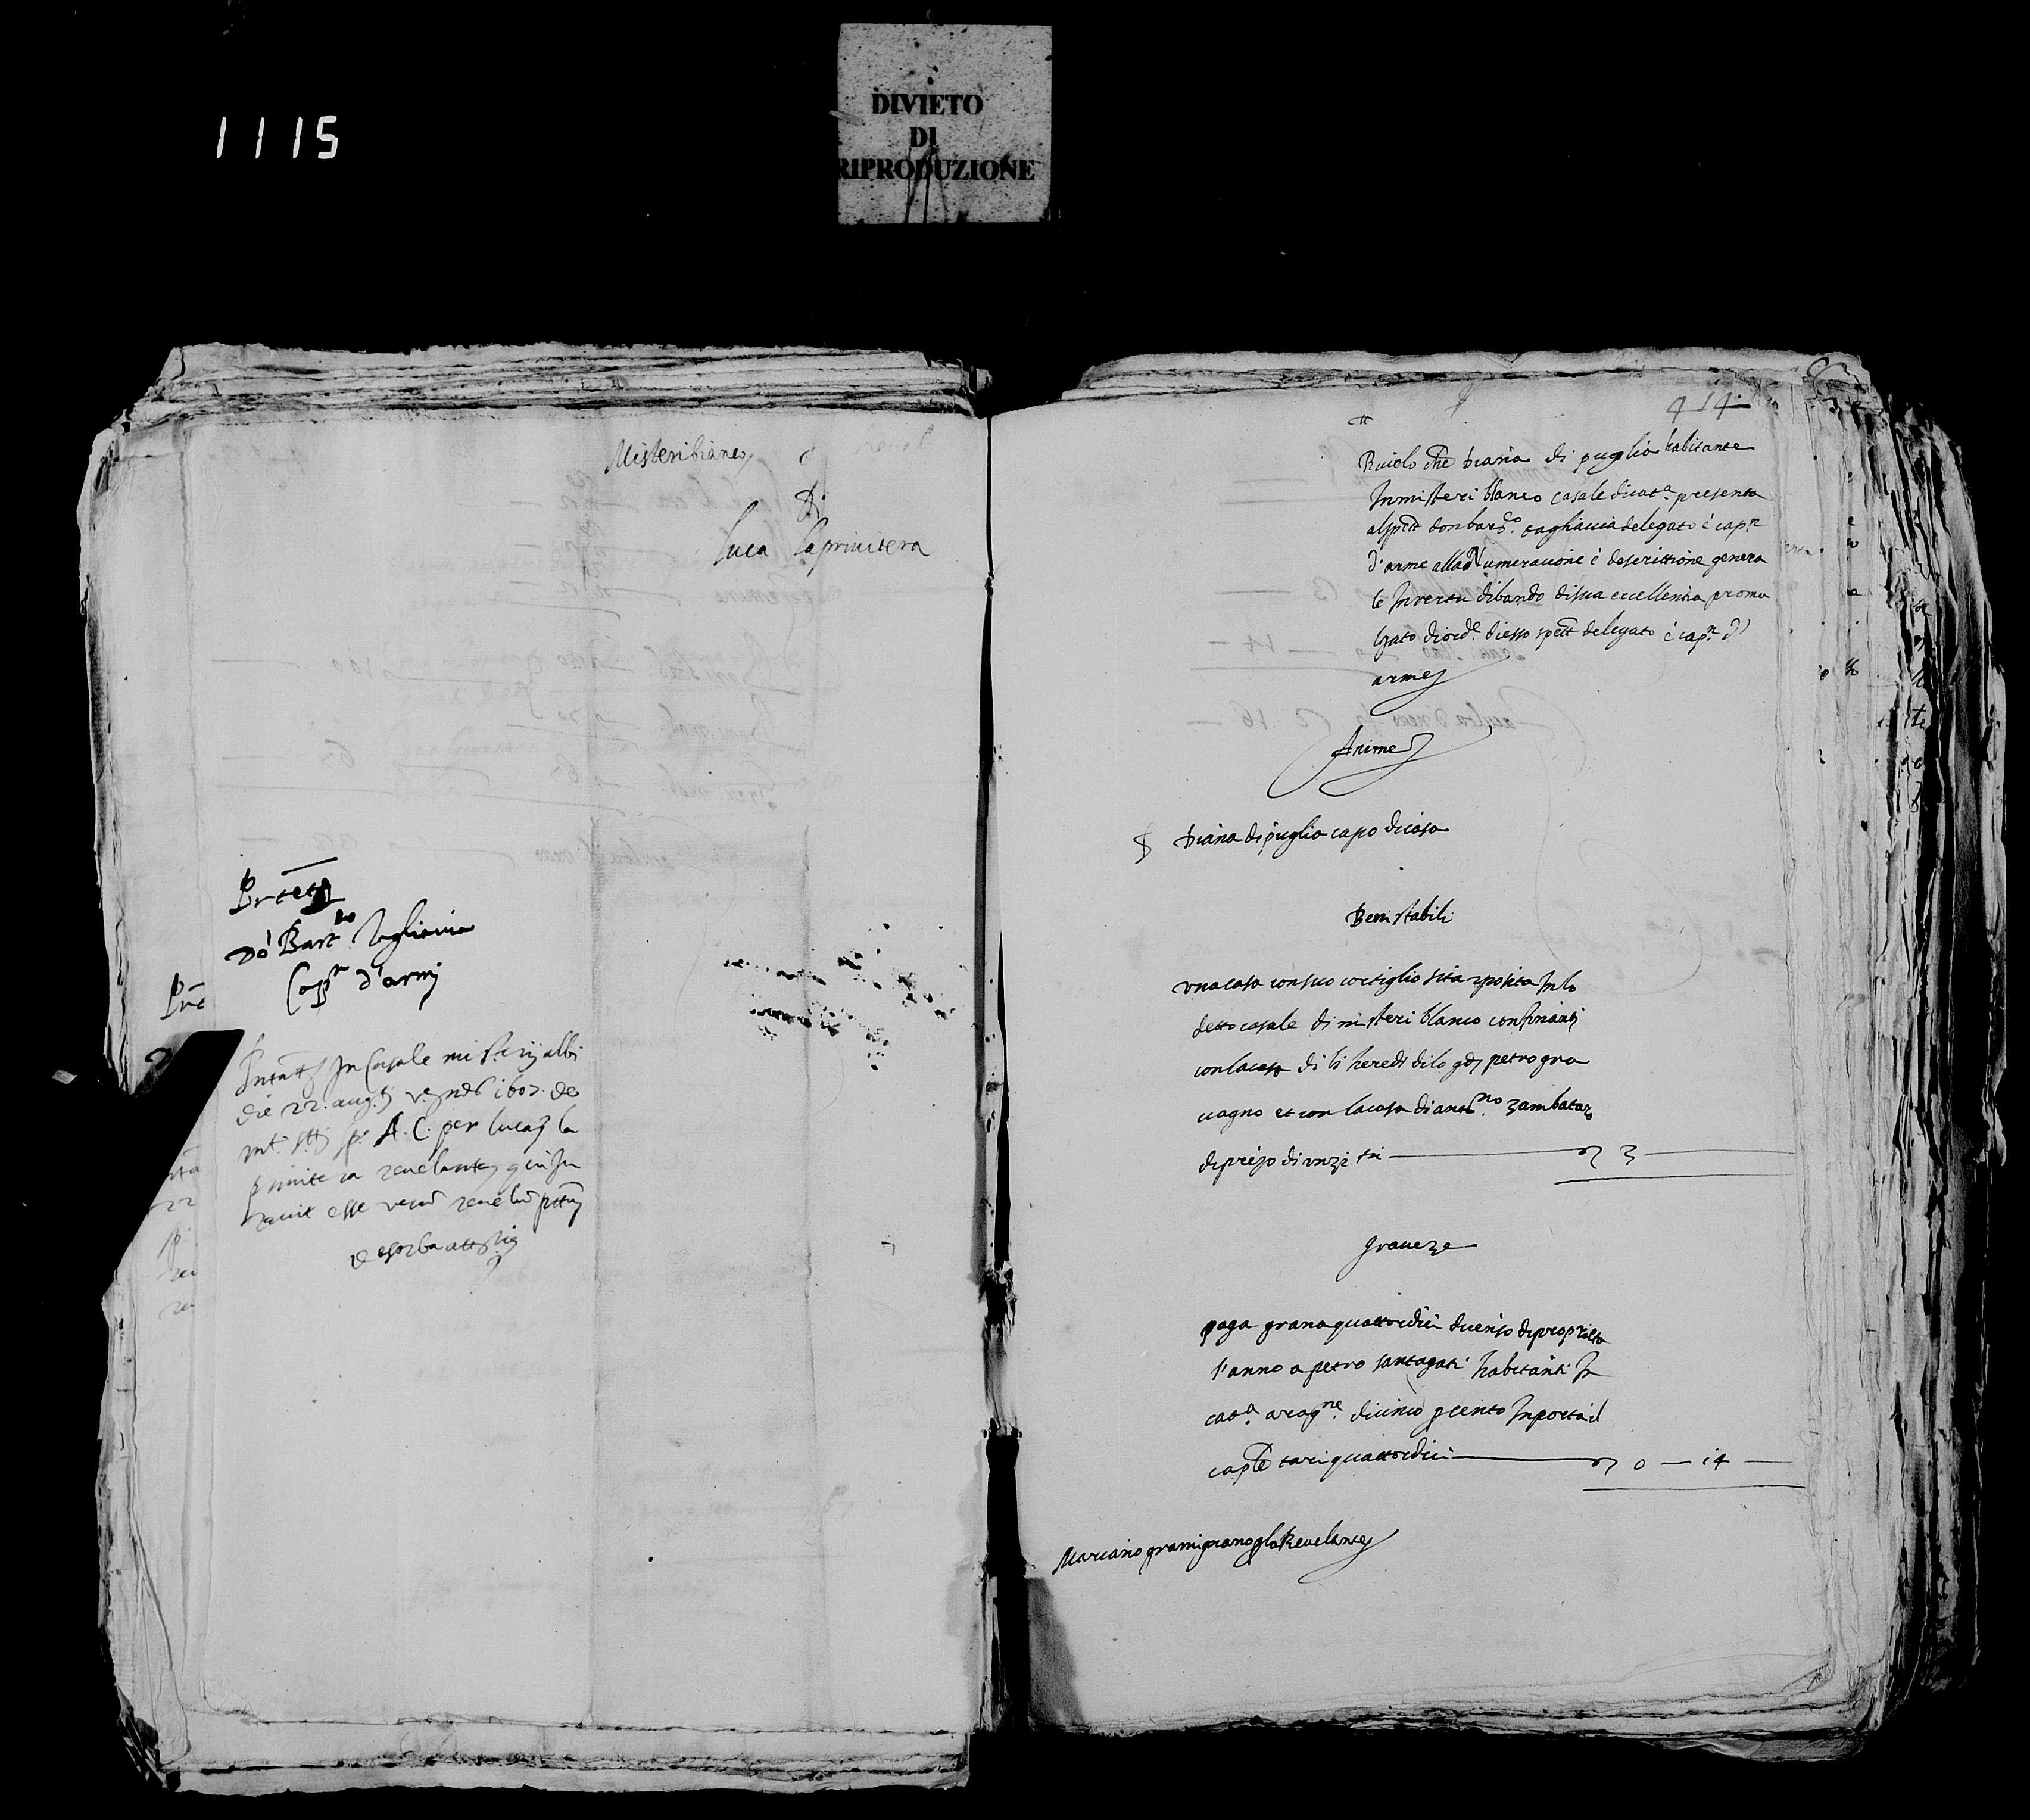 1115
DIVIETO
DI
RIPRODUZIONE
Misteribianco
Di
Luca laprimitera
Do' Bart.eo Tagliavia
Cap.n d'armi
In Casale misterij albi
die 22. aug.ti
A. C. per lucam la
primitera revelantem qui Ju
ravit esse verum
414
Rivelo che diana di puglia habitante
In misteri blanco casale di cat.a presenta
al spett don bart.eo tagliavia delegato è cap.n
d'arme alla Numeracione è descrittione genera
le In vertu di bando di sua eccellentia promu
lgato di ord.e di esso spett delegato è cap.n d'
arme
Anime
Diana di puglia capo di casa
Beni stabili
una casa con suo cortiglio sita e posita In lo
detto casale di misteri blanco confinanti
con la casa di li heredi di lo qdm petro gra
vagno et con la casa di ant.no zambataro
di prezo di unzi tri — 3 —
gravezze
paga grana quattordici di censo di proprieta
l'anno a petro santagati habitanti In
cat.a a rag.ne di cinco per cento Inporta il
cap.le tari quattordici — 0 — 14 —
Mariano gramignano per la Revelante